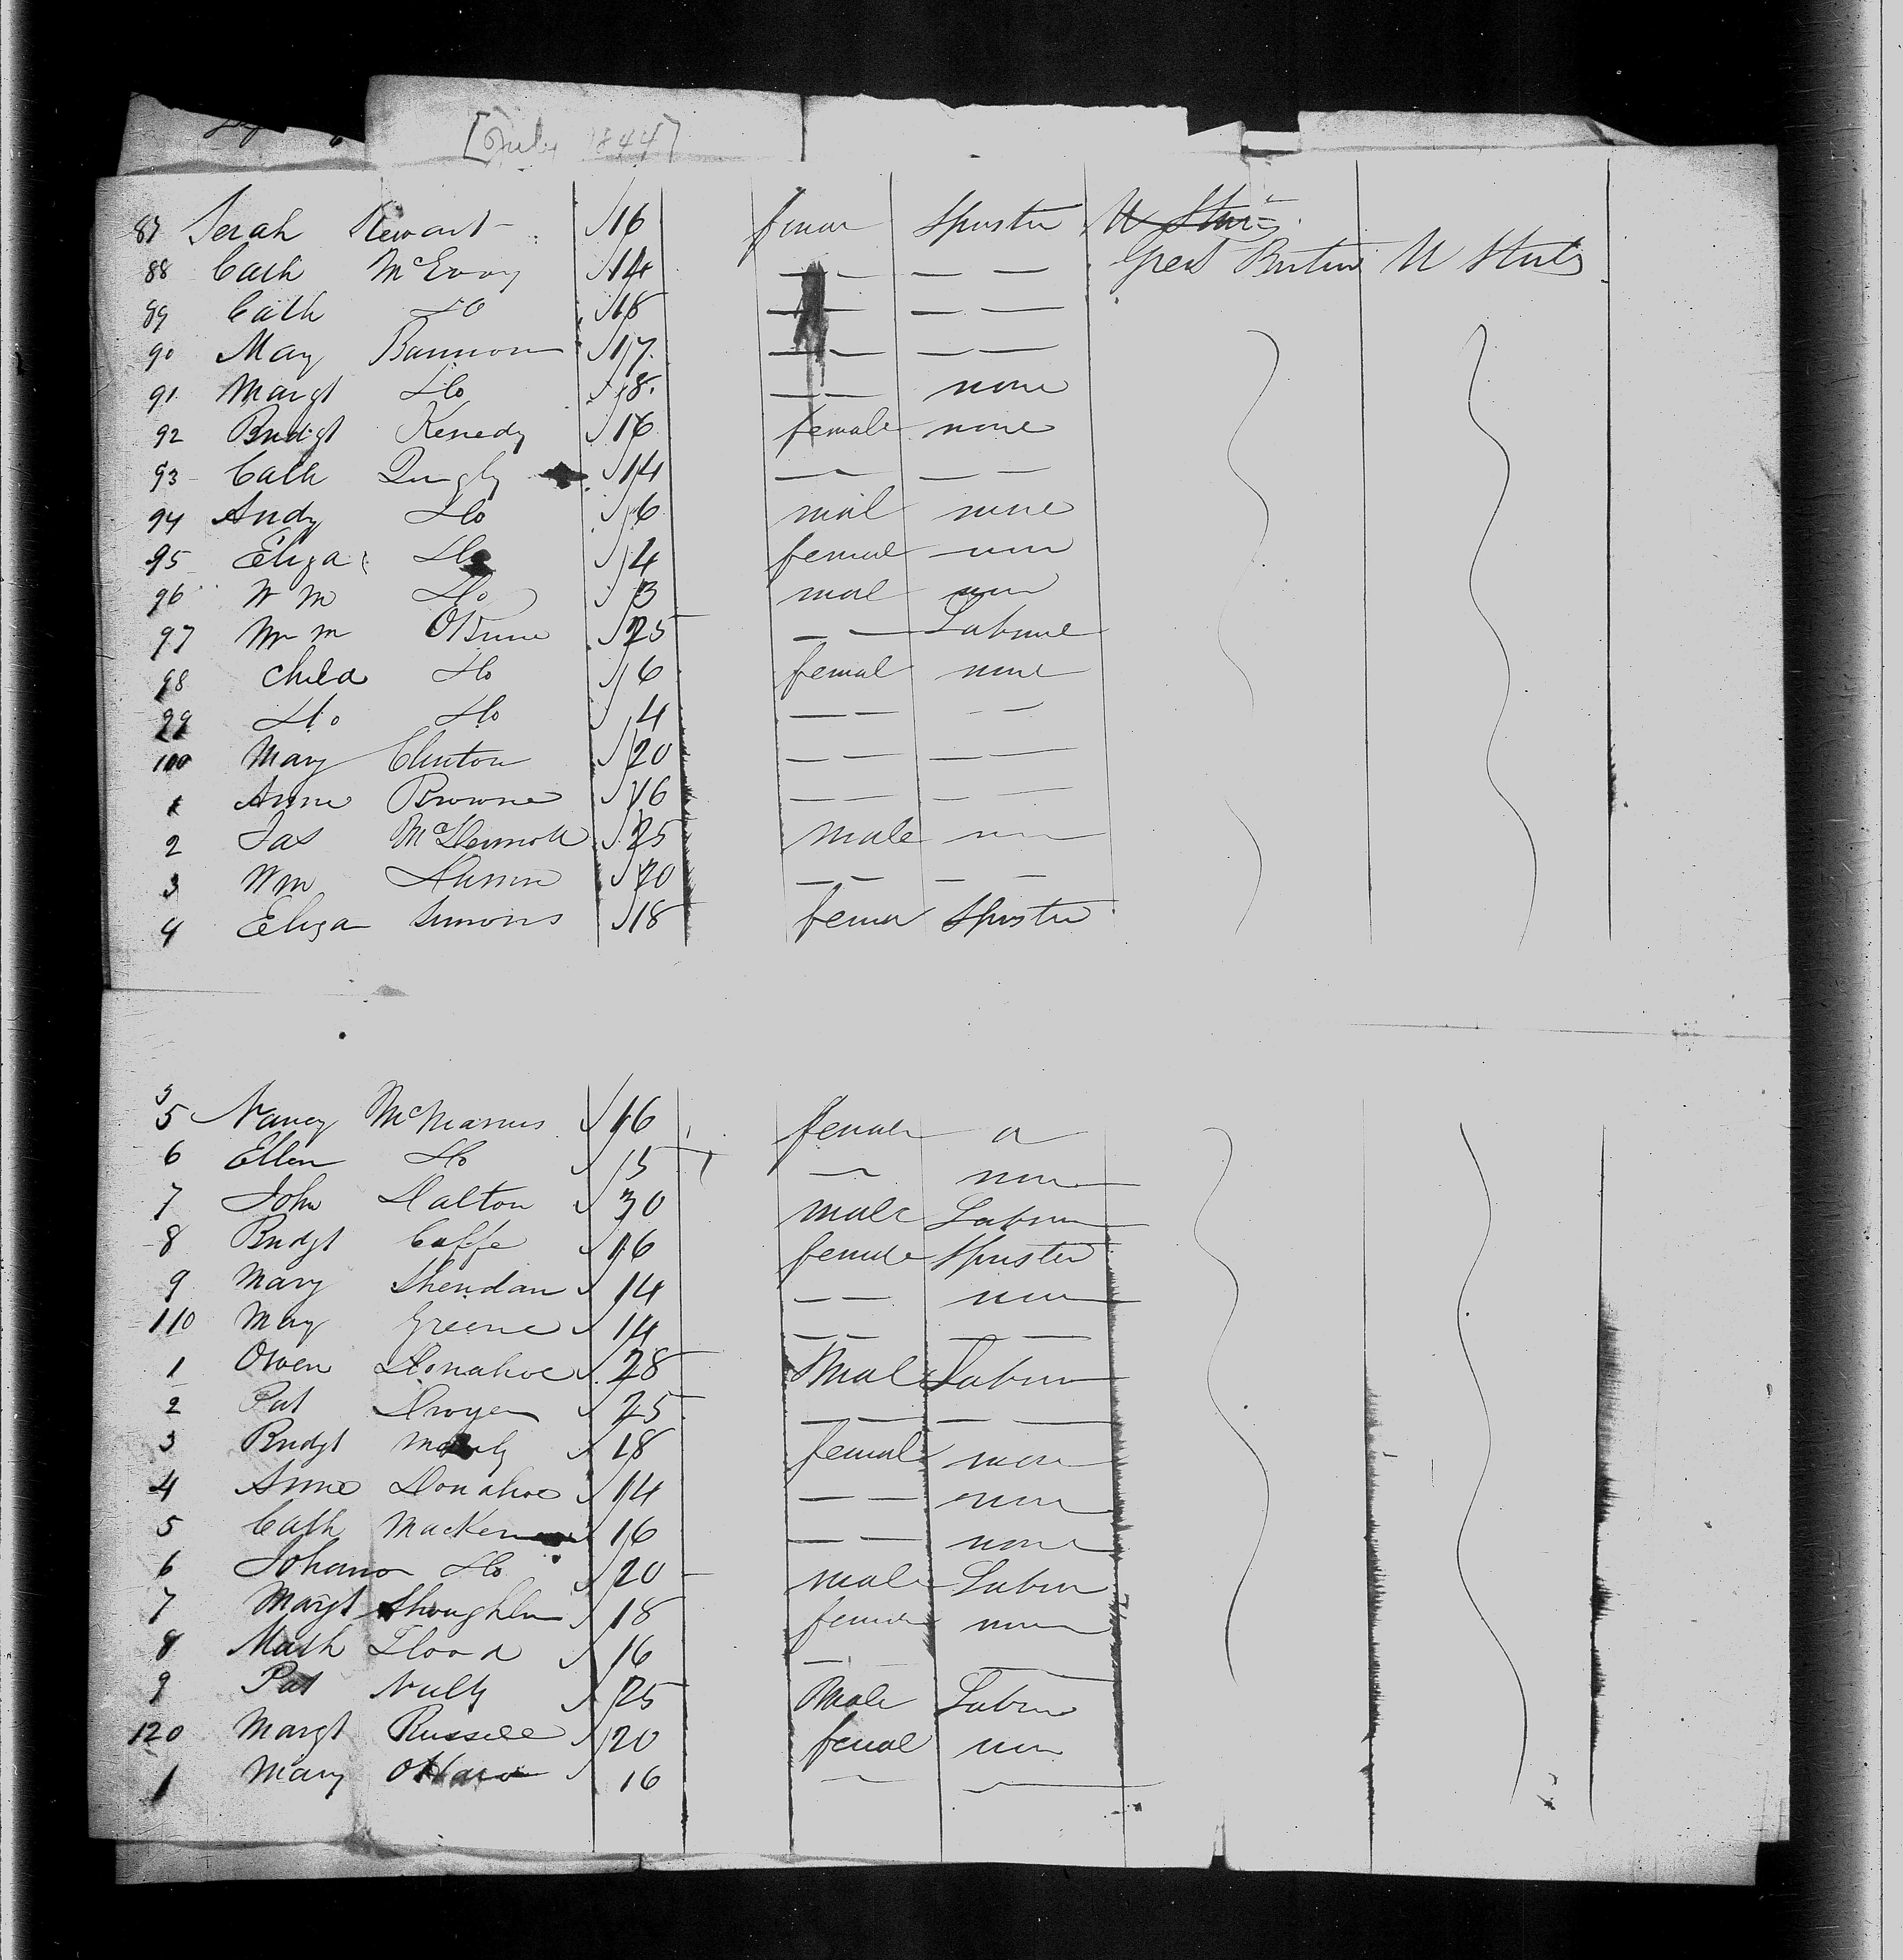 [July 1844]
87 Serah Stewart 16 femae Spinster U States
88 Cath McEvoy 14 — — — — Great Britain U States
89 Cath Do 18 — — — —
90 Mary Bannon 17 — — — —
91 Margt Do 8 — — none
92 Bridgt Kenedy 16 female none
93 Cath Quigly 14 — — — —
94 Andy Do 6 mal none
95 Eliza Do 4 femal non
96 Wm Do 3 mal non
97 Wm 25 — — Laborer
98 child Do 6 femal none
99 Do Do 4 — — — —
100 Mary Clinton 20 — — — —
1 Anne Browne 16 — — — —
2 Jas McDermott 25 male non
3 Wm 20 — — — —
4 Eliza Simons 18 femae Spinster
5 Nancy McManus 16 female
6 Ellen Do 15 — non
7 John Dalton 30 male Laborer
8 Bridgt Caffe 16 female Spinster
9 Mary Sheridan 14 — — non
110 Mary Greene 14 — — — —
1 Owen Donahoe 28 Male Labour
2 Pat 25 — — — —
3 Bridgt 18 femal none
4 Anne Donahoe 14 — — none
5 Cath 16 — — none
6 Johanna Do 20 male Labour
7 Margt 18 female non
8 Math Flood 16 — — —
9 Pat Nulty 25 Male Labour
120 Margt Russell 20 femal non
1 Mary OHara 16 — —